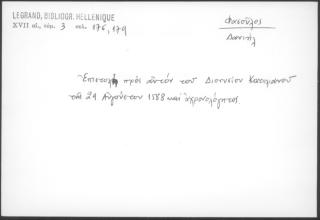 LEGRAND, BIBLIOGR. HELLENIQUE
XVII αἰ., τόμ. 3 σελ. 176, 179
Φασοῦλος
Δανιὴλ
Ἐπιστολὴ πρὸς αὐτὸν τοῦ Διονυσίου Κατηλιανοῦ
τῆς 29 Αὐγούστου 1588 καὶ ἀχρονολόγητος.